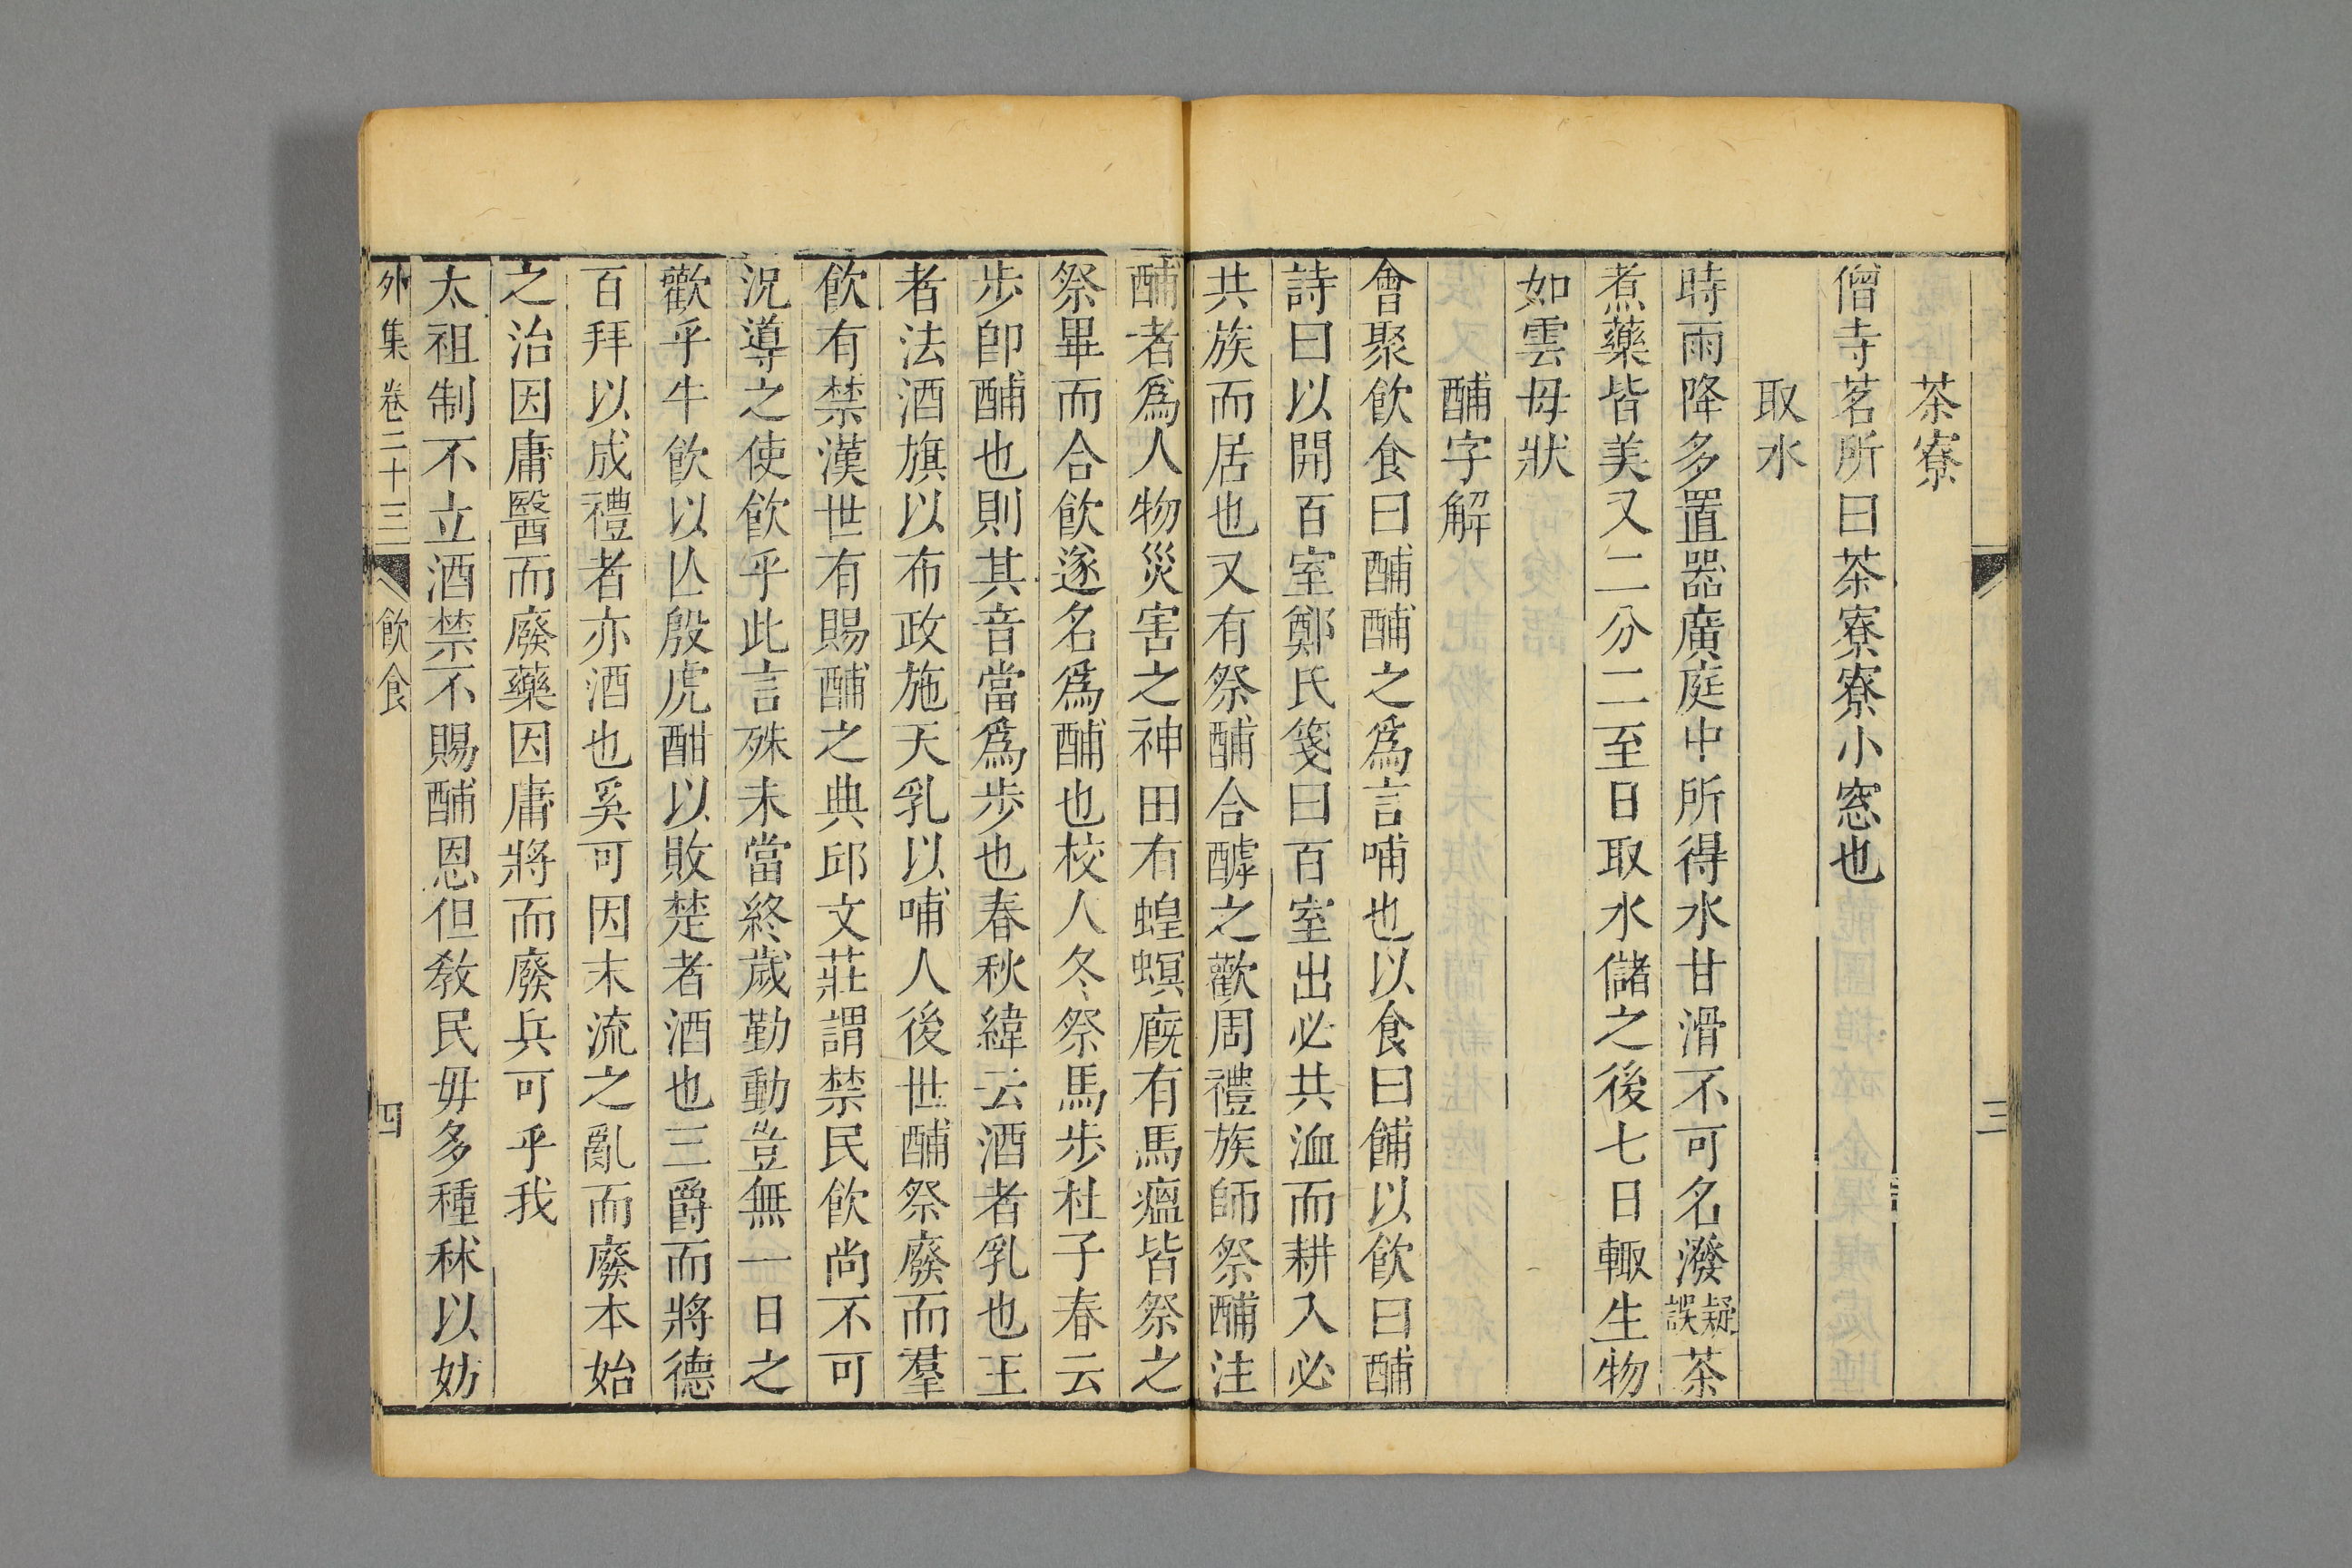 三
茶寮
僧寺茗所曰茶寮寮小窓也
取水
時雨降多置器廣庭中所得水甘滑不可名潑疑誤茶
煮藥皆美又二分二至日取水儲之後七日輙生物
如雲毋狀
酺字解
會聚飲食曰酺酺之爲言哺也以食曰餔以飲曰酺
詩曰以開百室鄭氏箋曰百室出必共洫而耕入必
共族而居也又有祭酺合醵之歡周禮族師祭酺注
酺者爲人物災害之神田有蝗螟廐有馬瘟皆祭之
祭畢而合飲遂名爲酺也校人冬祭馬步杜子春云
步卽酺也則其音當爲步也春秋緯云酒者乳也王
者法酒旗以布政施天乳以哺人後世酺祭廢而羣
飲有禁漢世有賜酺之典邱文莊謂禁民飲尚不可
況導之使飲乎此言殊未當終歲勤動豈無一日之
歡乎牛飲以亾殷虎酣以敗楚者酒也三爵而將德
百拜以成禮者亦酒也奚可因末流之亂而廢本始
之治因庸醫而廢藥因庸將而廢兵可乎我
太祖制不立酒禁不賜酺恩但敎民毋多種秫以妨
外集 卷二十三 飲食 四